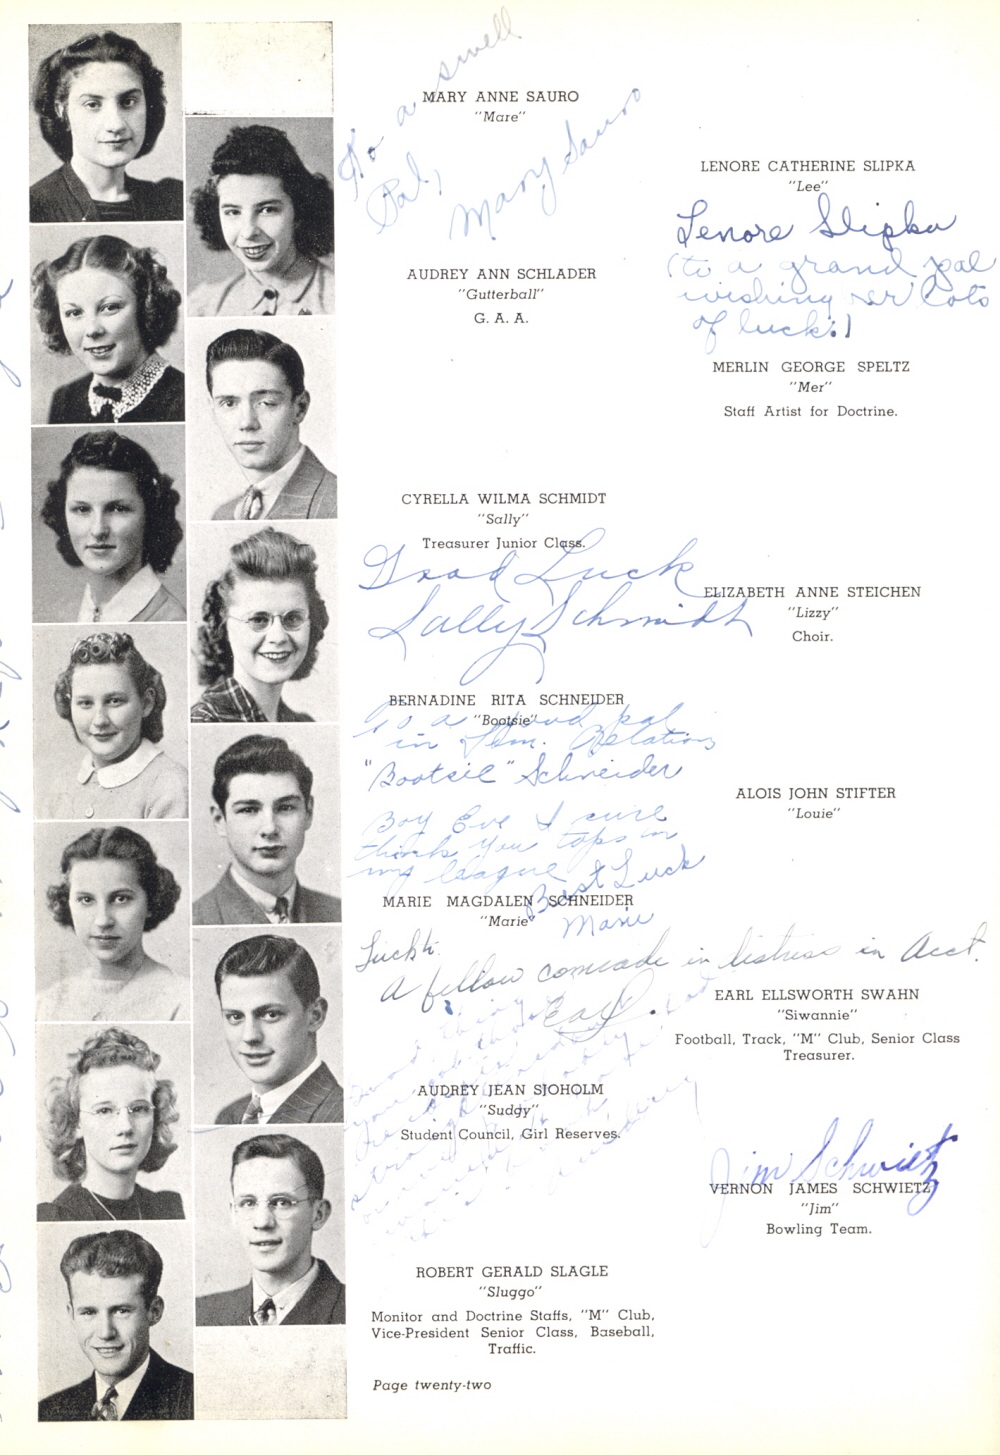 To a swell
Pal,
Mary Sauro
MARY ANNE SAURO
"Mare"
AUDREY ANN SCHLADER
"Gutterball"
G. A. A.
CYRELLA WILMA SCHMIDT
"Sally"
Treasurer Junior Class.
Good Luck
Sally Schmidt
BERNADINE RITA SCHNEIDER
"Bootsie"
To a good pal
in Hum. Relations
"Bootsie" Schneider
Boy Eve I sure
think you tops in
my league
Best Luck
Marie
MARIE MAGDALEN SCHNEIDER
"Marie"
Luck to
A fellow comrade in distress in Acct.
Earl.
AUDREY JEAN SJOHOLM
"Sudgy"
Student Council, Girl Reserves.
ROBERT GERALD SLAGLE
"Sluggo"
Monitor and Doctrine Staffs, "M" Club,
Vice-President Senior Class, Baseball,
Traffic.
LENORE CATHERINE SLIPKA
"Lee"
Lenore Slipka
(to a grand pal
wishing her lots
of luck!)
MERLIN GEORGE SPELTZ
"Mer"
Staff Artist for Doctrine.
ELIZABETH ANNE STEICHEN
"Lizzy"
Choir.
ALOIS JOHN STIFTER
"Louie"
EARL ELLSWORTH SWAHN
"Siwannie"
Football, Track, "M" Club, Senior Class
Treasurer.
Jim Schwietz
VERNON JAMES SCHWIETZ
"Jim"
Bowling Team.
Page twenty-two